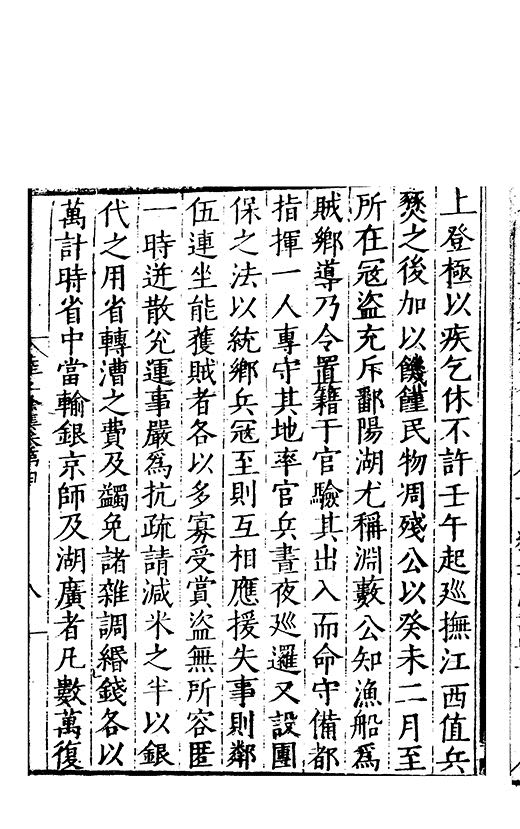 上登極以疾乞休不許壬午起廵撫江西值兵
燹之後加以饑饉民物凋殘公以癸未二月至
所在冦盗充斥鄱陽湖尤稱淵藪公知漁船爲
賊鄉導乃令置籍于官驗其出入而命守備都
指揮一人專守其地率官兵晝夜廵邏又設團
保之法以統鄉兵冦至則互相應援失事則鄰
伍連坐能獲賊者各以多寡受賞盜無所容匿
一時迸散兊運事嚴爲抗疏請減米之半以銀
代之用省轉漕之費及蠲免諸雜調緡錢各以
萬計時省中當輸銀京師及湖廣者凡數萬復
八